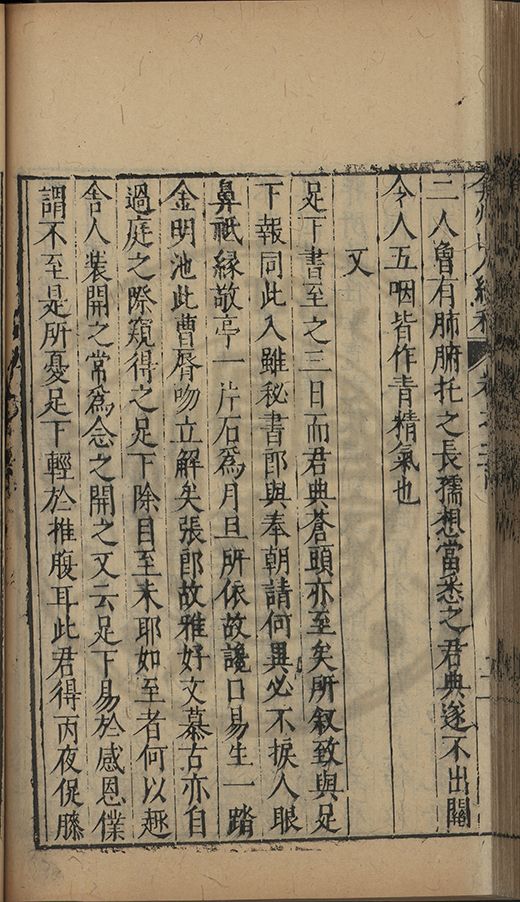 弇州山人續稿
二人會有肺腑托之長孺想當悉之君典遂不出關
令人五咽皆作青精氣也
又
足下書至之三日而君典蒼頭亦至矣所叙致與足
下報同此入雖秘書郎與奉朝請何異必不捩人眼
鼻祇緣敬亭一片石為月旦所依故讒口易生一踏
金明池此曹脣吻立解矣張郎故雅好文慕古亦自
過庭之際窺得之足下除目至未耶如至者何以趣
舍人裝開之常為念之開之又云足下易於感恩僕
謂不至是所憂足下輕於推腹耳此君得丙夜促膝